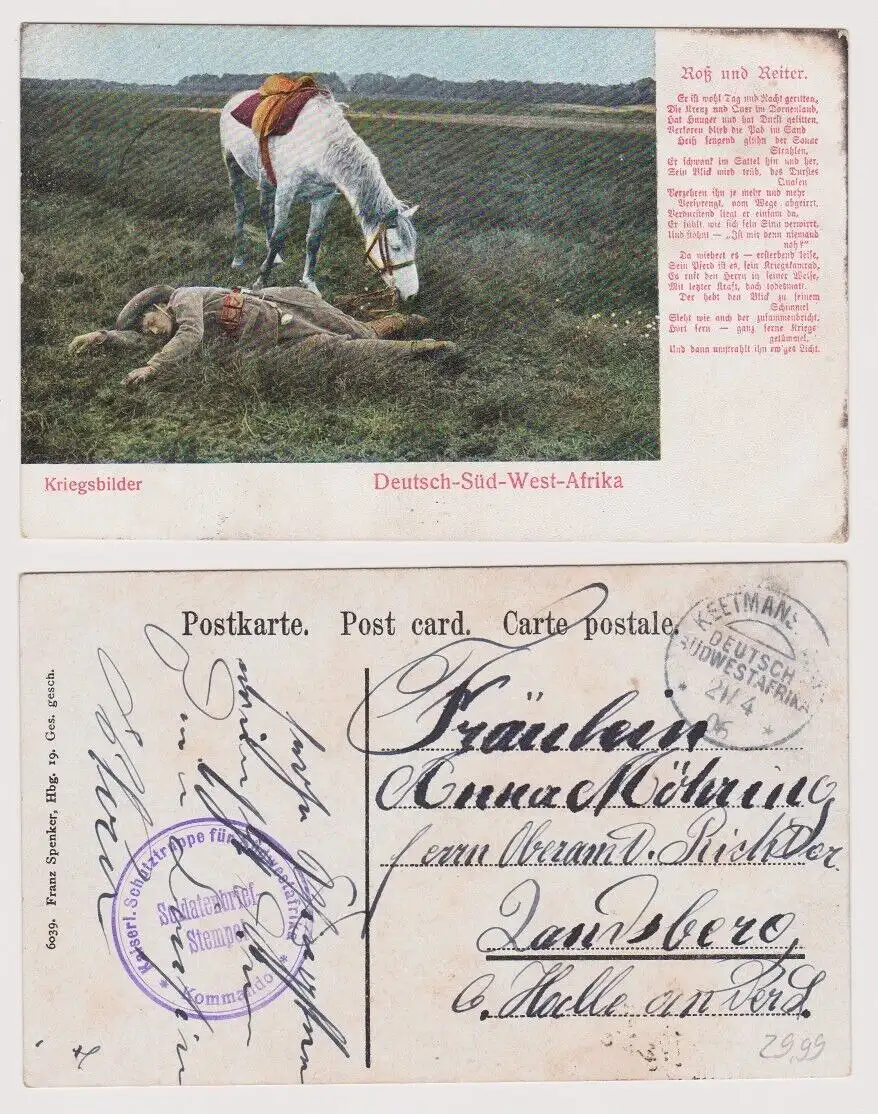 Roß und Reiter.
Er ist wohl Tag und Nacht geritten,
Die Kreuz und Quer im Dornenland,
Hat Hunger und hat Durst gelitten,
Verloren blieb die Pad im Sand
Heiß sengend glühn der Sonne
Strahlen,
Er schwankt im Sattel hin und her,
Sein Blick wird trüb, des Durstes
Qualen
Verzehren ihn je mehr und mehr
Versprengt, vom Wege abgeirrt,
Verdurstend liegt er einsam da,
Er fühlt, wie sich sein Sinn verwirrt,
Und stöhnt — „Ist mir denn niemand
nah?"
Da wiehert es — ersterbend leise,
Sein Pferd ist es, sein Kriegskamrad,
Es ruft den Herrn in seiner Weise,
Mit letzter Kraft, doch todesmatt.
Der hebt den Blick zu seinem
Schimmel
Sieht wie auch der zusammenbricht,
Hört fern — ganz ferne Kriegs
getümmel,
Und dann umstrahlt ihn ew'ges Licht.
Kriegsbilder
Deutsch-Süd-West-Afrika
Postkarte. Post card. Carte postale.
KEETMANS
DEUTSCH
SÜDWESTAFRIKA
* 24/4 *
06
Fräulein
Anna Möhring
Herrn Oberamt. Richter.
Landsberg
b. Halle an der S.
29,99
Kaiserl. Schutztruppe für Südwestafrika
Soldatenbrief
Stempel
* Kommando *
6039. Franz Spenker, Hbg. 19. Ges. gesch.